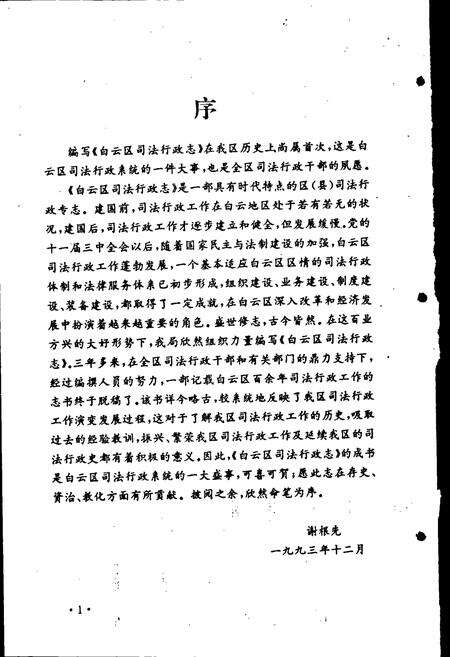 序
编写《白云区司法行政志》在我区历史上尚属首次，这是白
云区司法行政系统的一件大事，也是全区司法行政干部的夙愿。
《白云区司法行政志》是一部具有时代特点的区(县)司法行
政专志。建国前，司法行政工作在白云地区处于若有若无的状
况，建国后，司法行政工作才逐步建立和健全，但发展缓慢。党的
十一届三中全会以后，随着国家民主与法制建设的加强，白云区
司法行政工作蓬勃发展，一个基本适应白云区区情的司法行政
体制和法律服务体系已初步形成，组织建设、业务建设、制度建
设、装备建设，都取得了一定成就，在白云区深入改革和经济发
展中扮演着越来越重要的角色。盛世修志，古今皆然。在这百业
方兴的大好形势下，我局欣然组织力量编写《白云区司法行政
志》。三年多来，在全区司法行政干部和有关部门的鼎力支持下，
经过编撰人员的努力，一部记载白云区百余年司法行政工作的
志书终于脱稿了。该书详今略古，较系统地反映了我区司法行政
工作演变发展过程，这对于了解我区司法行政工作的历史，吸取
过去的经验教训，振兴、繁荣我区司法行政工作及延续我区的司
法行政史都有着积极的意义。因此，《白云区司法行政志》的成书
是白云区司法行政系统的一大盛事，可喜可贺；愿此志在存史、
资治、教化方面有所贡献。披阅之余，欣然命笔为序。
谢根先
一九九三年十二月
·1·